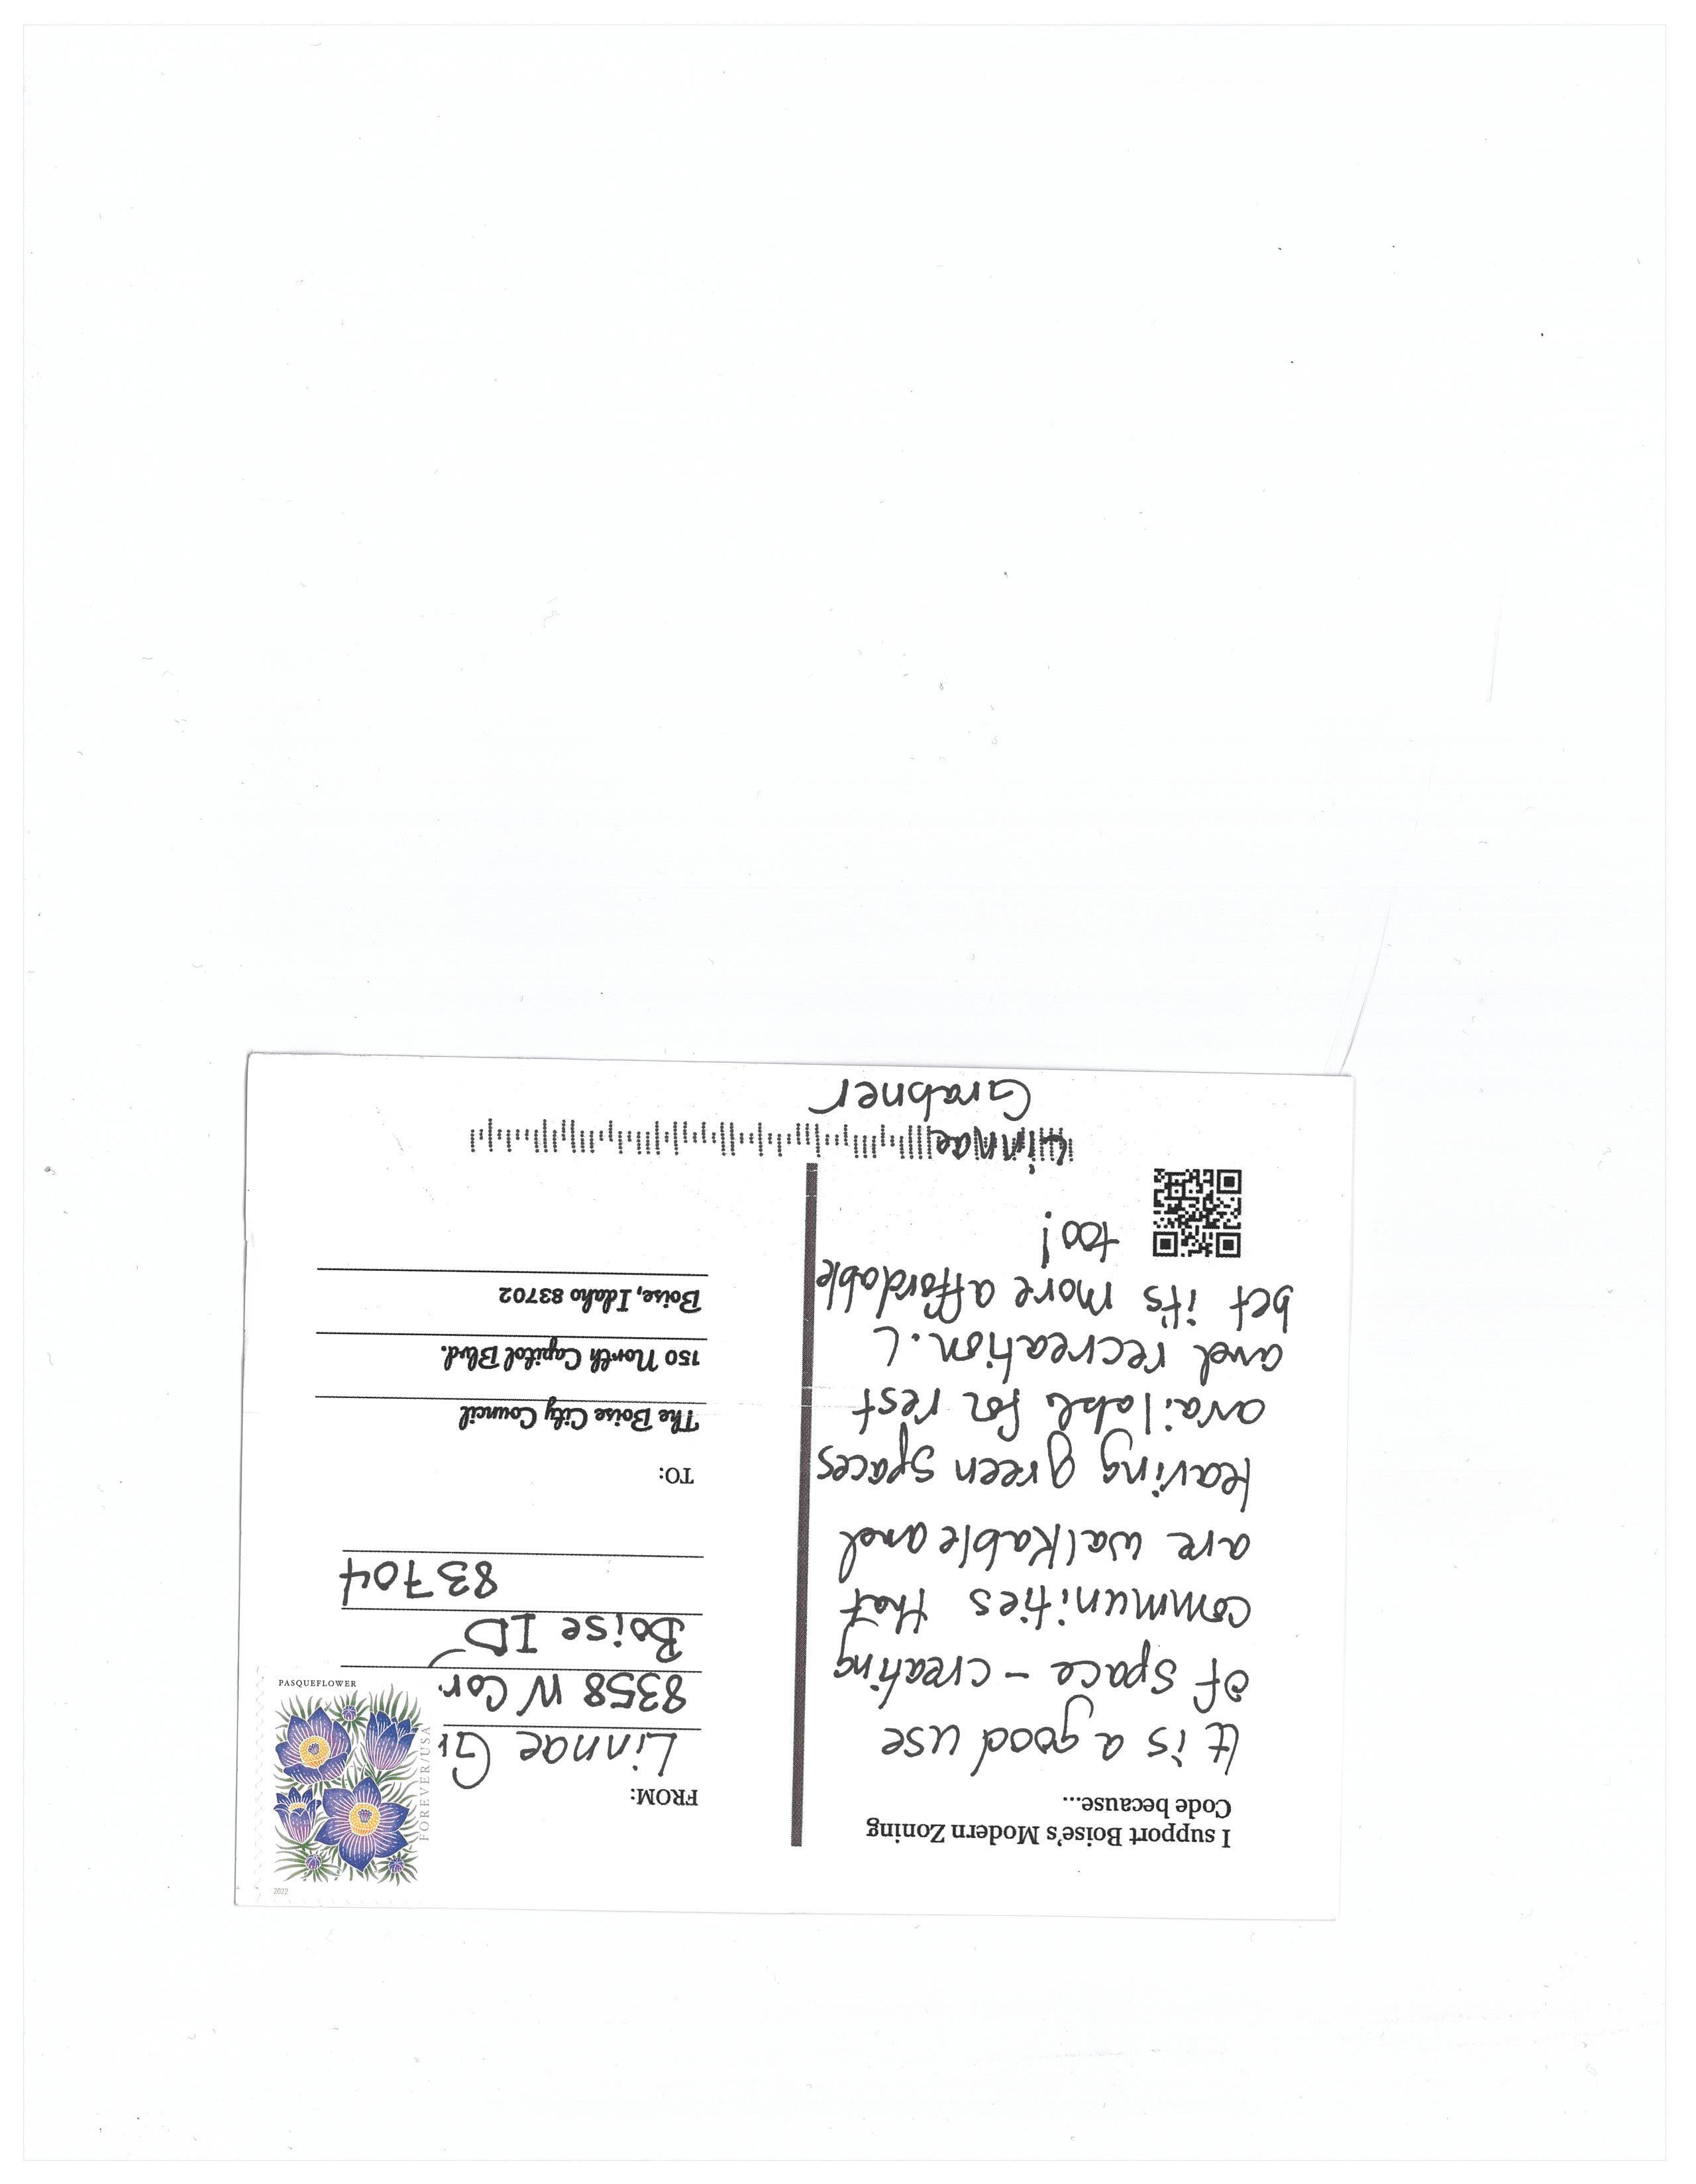 I support Boise's Modern Zoning
Code because...
It is a good use
of space - creating
communities that
are walkable and
leaving green spaces
available for rest
and recreation. I
bet it's more affordable
too!
Linnae
Grabner
FROM:
Linnae Gr
8358 W Cor
Boise ID
83704
TO:
The Boise City Council
150 North Capitol Blvd.
Boise, Idaho 83702
PASQUEFLOWER
FOREVER/USA
2022